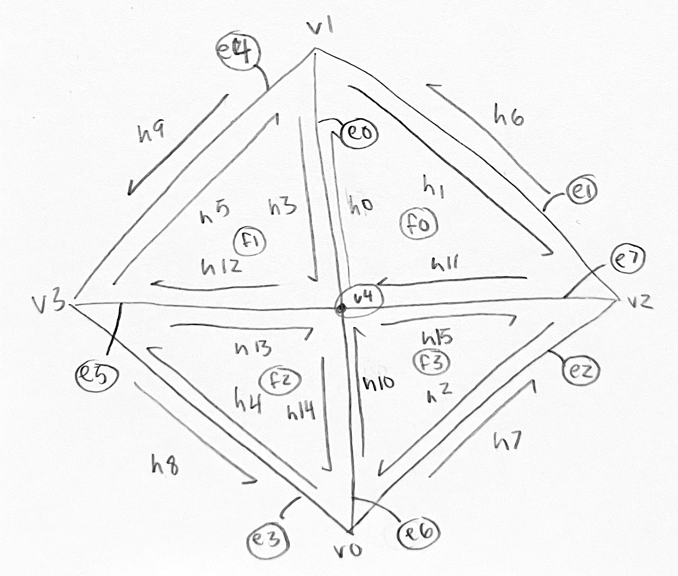 v1
e4
h9
h6
e0
h5
h3
h0
h1
e1
f1
f0
h12
h11
e7
v3
v4
v2
h13
h15
e5
f2
f3
e2
h4
h14
h10
h2
h8
h7
e3
v0
e6